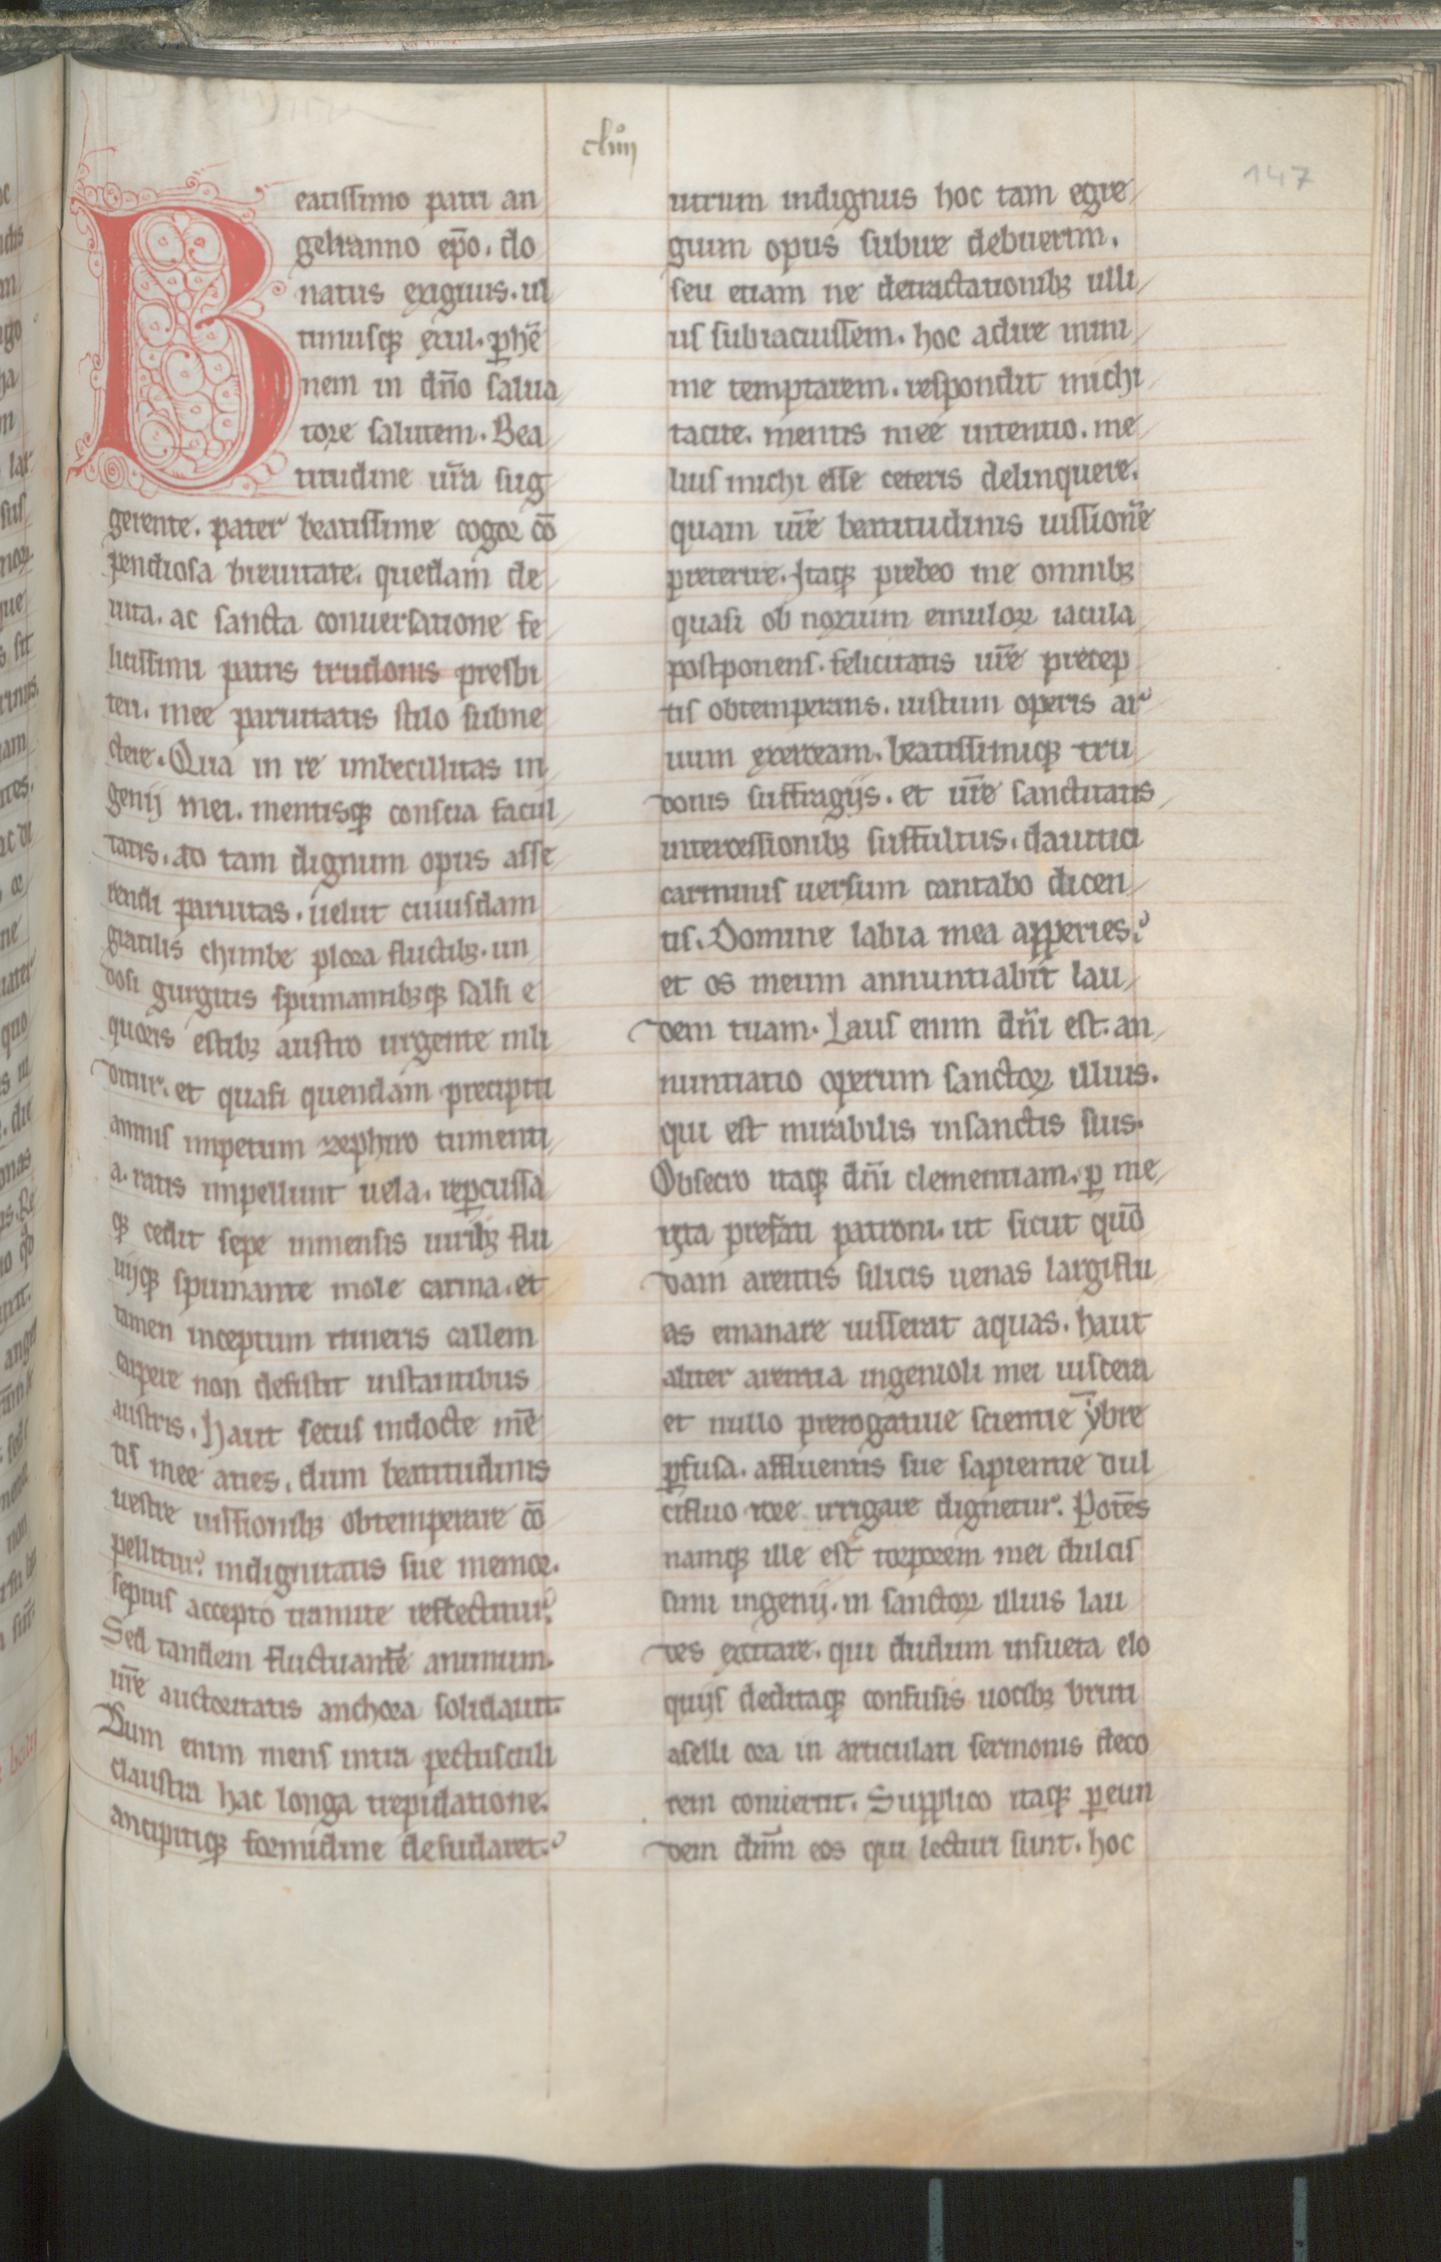 cluij
147
Beatissimo patri an
gelranno ep̄o. do
natus exiguus. ul
timusq exul. ꝑhē
nem in dn̄o salua
tore salutem. Bea
titudine ur̄a sug
gerente. pater beatissime cogor cō
pendiosa breuitate. quedam de
uita. ac sancta conuersatione fe
licissimi patris trudonis presbi
teri. mee paruitatis stilo subne
ctere. Qua in re imbecillitas in
genij mei. mentisqꝫ conscia facul
tatis. ad tam dignum opus asse
rendi paruitas. uelut cuiusdam
gracilis chimbe plora fluctibꝫ. un
dosi gurgitis spumantibꝫqꝫ salsi e
quoris estibꝫ austro urgente inli
ditur. et quasi quendam precipiti
amnis impetum zephiro tumenti
a. ratis impellunt uela. reꝑcussa
qꝫ cedit sepe inmensis uiribꝫ flu
uijqꝫ spumante mole carina. et
tamen inceptum itineris callem
carpere non desistit instantibus
austris. Haut secus indocte mē
tis mee acies. dum beatitudinis
uestre iussionibꝫ obtemperare cō
pellitur. indignitatis sue memor.
sepius accepto tramite reflectitur.
Sed tandem fluctuantē animum.
ur̄e auctoritatis anchora solidauit.
Dum enim mens intra pectusculi
claustra hac longa trepidatione.
ancipitiqꝫ formidine desudaret.
utrum indignus hoc tam egre
gium opus subire debuerim.
seu etiam ne detractationibꝫ ulli
us subiacuissem. hoc adire mini
me temptarem. respondit michi
tacite. mentis mee intentio. me
lius michi esse ceteris delinquere.
quam ur̄e beatitudinis iussionē
preterire. Itaqꝫ prebeo me omnibꝫ
quasi ob noxium emuloꝝ iacula
postponens. felicitatis ur̄e precep
tis obtemperans. iustum operis ar
uum exerceam. beatissimiqꝫ tru
donis suffragijs. et ur̄e sanctitatis
intercessionibꝫ suffultus. dauitici
carminis uersum cantabo dicen
tis. Domine labia mea apperies.
et os meum annuntiabit lau
dem tuam. Laus enim dn̄i est. an
nuntiatio operum sanctoꝝ illius.
qui est mirabilis insanctis suis.
Obsecro itaqꝫ dn̄i clementiam. ꝑ me
rita prefati patroni. ut sicut quō
dam arentis silicis uenas largiflu
as emanare iusserat aquas. haut
aliter arentia ingenioli mei uiscera
et nullo prerogatiue scientie ȳbre
ꝑfusa. affluentis sue sapientie dul
cifluo rore irrigare dignetur. Potēs
namqꝫ ille est torporem mei dulcis
simi ingenij. in sanctoꝝ illius lau
des excitare. qui dudum insueta elo
quijs deditaqꝫ confusis uocibꝫ bruti
aselli ora in articulati sermonis deco
rem conuertit. Supplico itaqꝫ ꝑ eun
dem dn̄m eos qui lecturi sunt. hoc